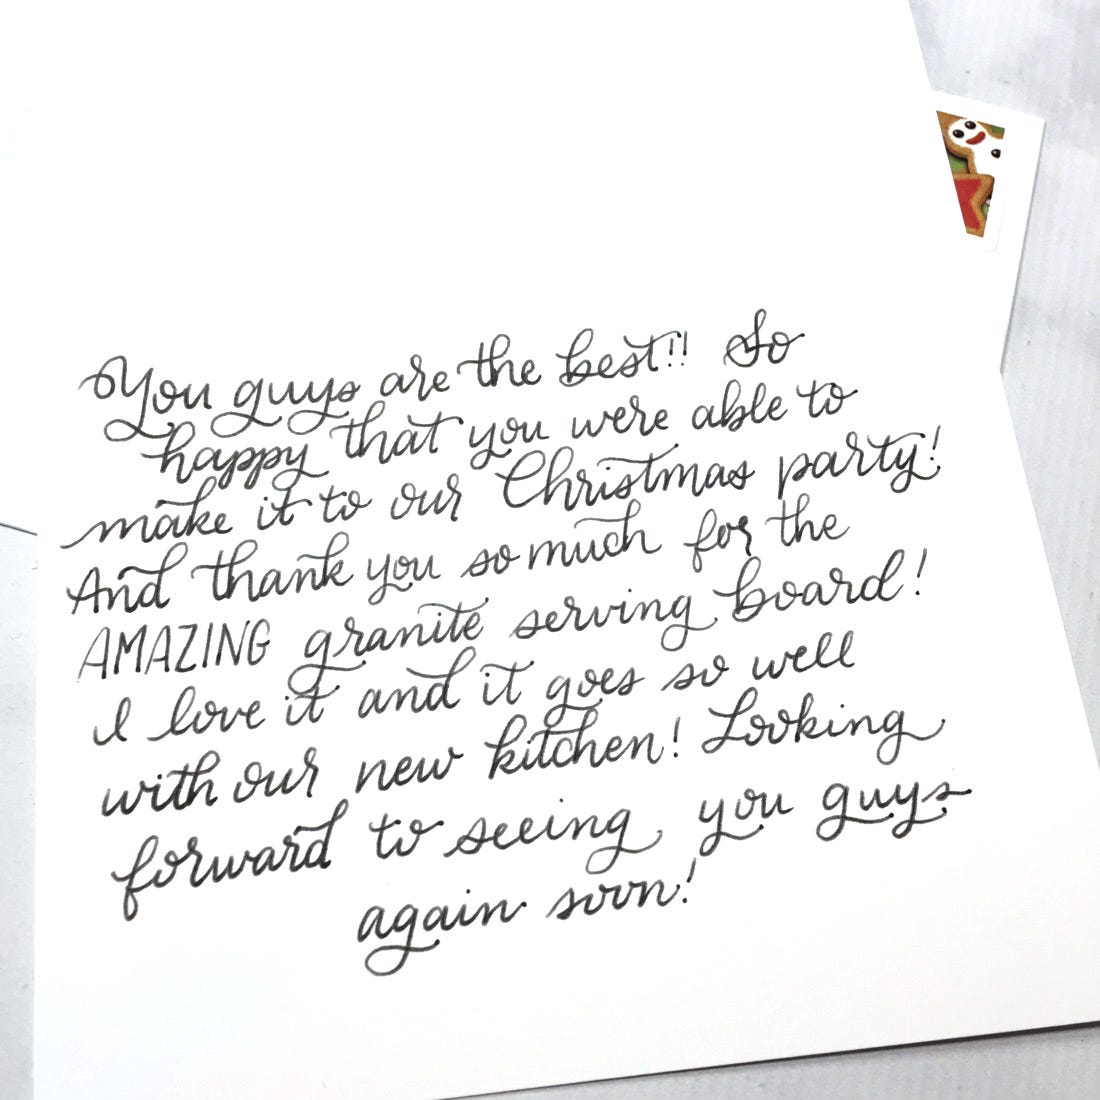 You guys are the best!! So
happy that you were able to
make it to our Christmas party!
And thank you so much for the
AMAZING granite serving board!
I love it and it goes so well
with our new kitchen! Looking
forward to seeing you guys
again soon!